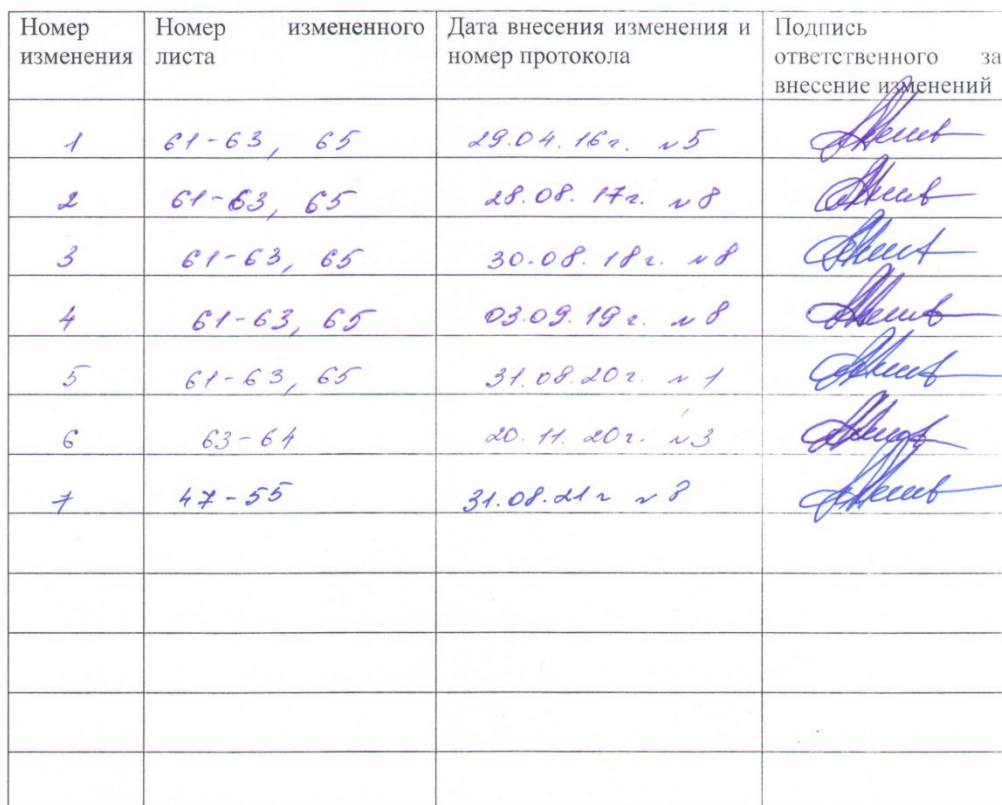 Номер изменения Номер измененного листа Дата внесения изменения и номер протокола Подпись ответственного за внесение изменений
1 61-63, 65 29.04.16г. №5
2 61-63, 65 28.08.17г. №8
3 61-63, 65 30.08.18г. №8
4 61-63, 65 03.09.19г. №8
5 61-63, 65 31.08.20г. №1
6 63-64 20.11.20г. №3
7 47-55 31.08.21г №8